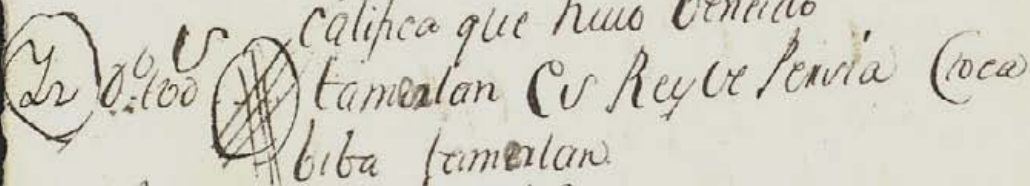 califica que huvo Vencido
tamerlan es Rey de Persia toca
biba tamerlan